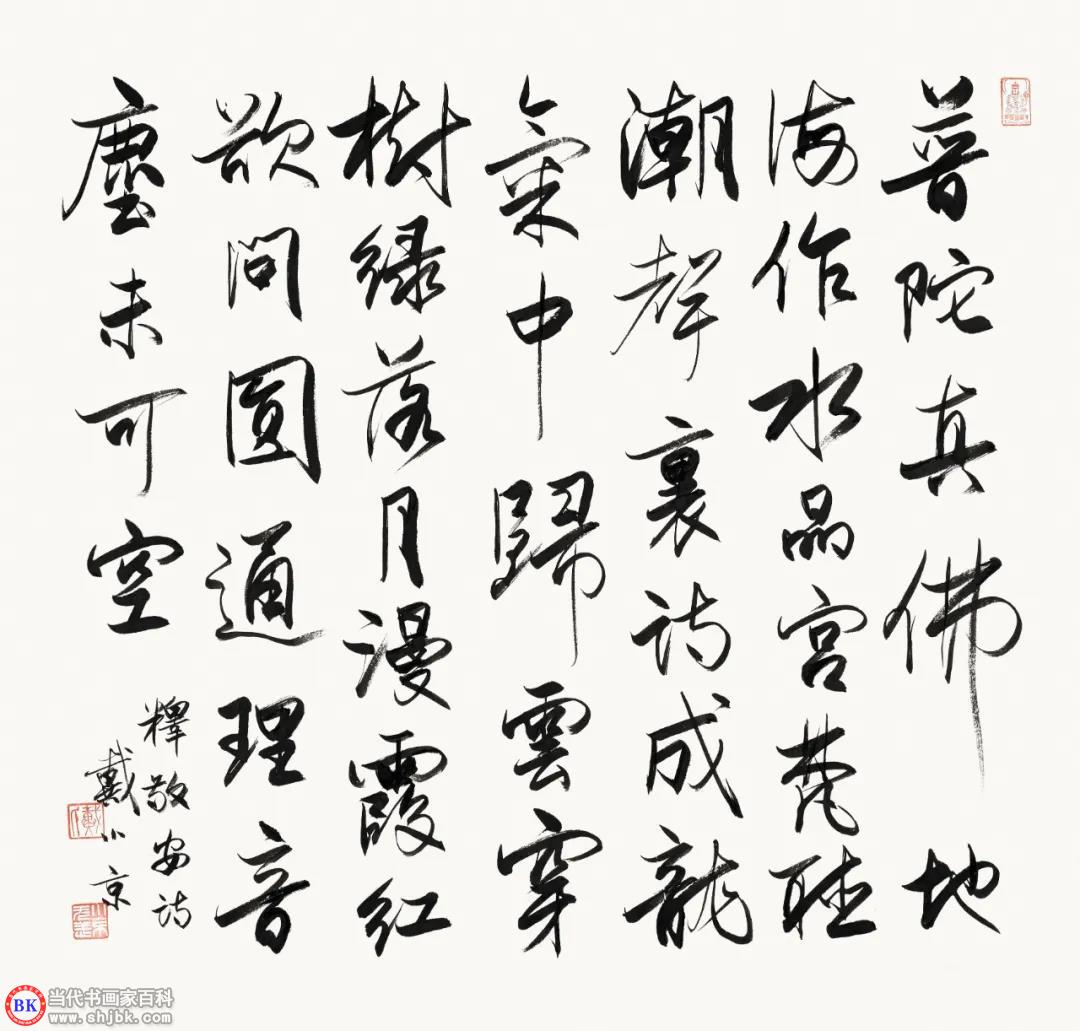 普陀真佛地
海作水晶宫梵聽
潮聲裏诗成龍
氣中歸雲穿
樹緑落月漫霞红
欲问圓通理音
塵未可空
釋敬安诗
戴小京
BK
当代书画家百科
www.shjbk.com